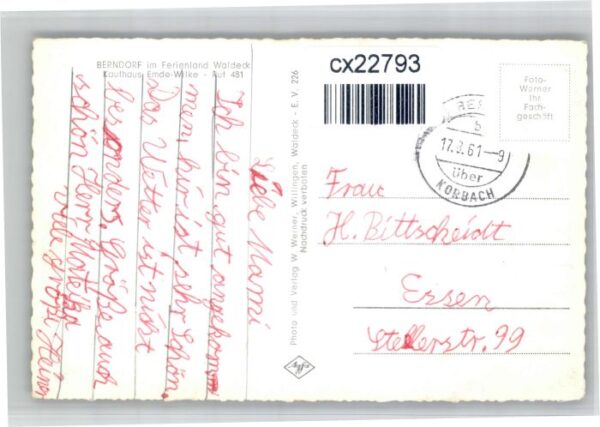 BERNDORF im Ferienland Waldeck
Kaufhaus Emde-Wilke - Ruf 481
Liebe Mami
Ich bin gut angekommen
mein hir ist sehr Schön.
Das Wetter ist nicht
besonders. Grüße auch
schön Herr
viele grüße
Photo und Verlag W. Werner, Willingen, Waldeck - E. V. 226
Nachdruck verboten
Agfa
cx22793
Foto-
Werner
Ihr
Fach-
geschäft
BE
b
17.8.61-9
über
KORBACH
Frau
H. Bittscheidt
Essen
Stellerstr. 99